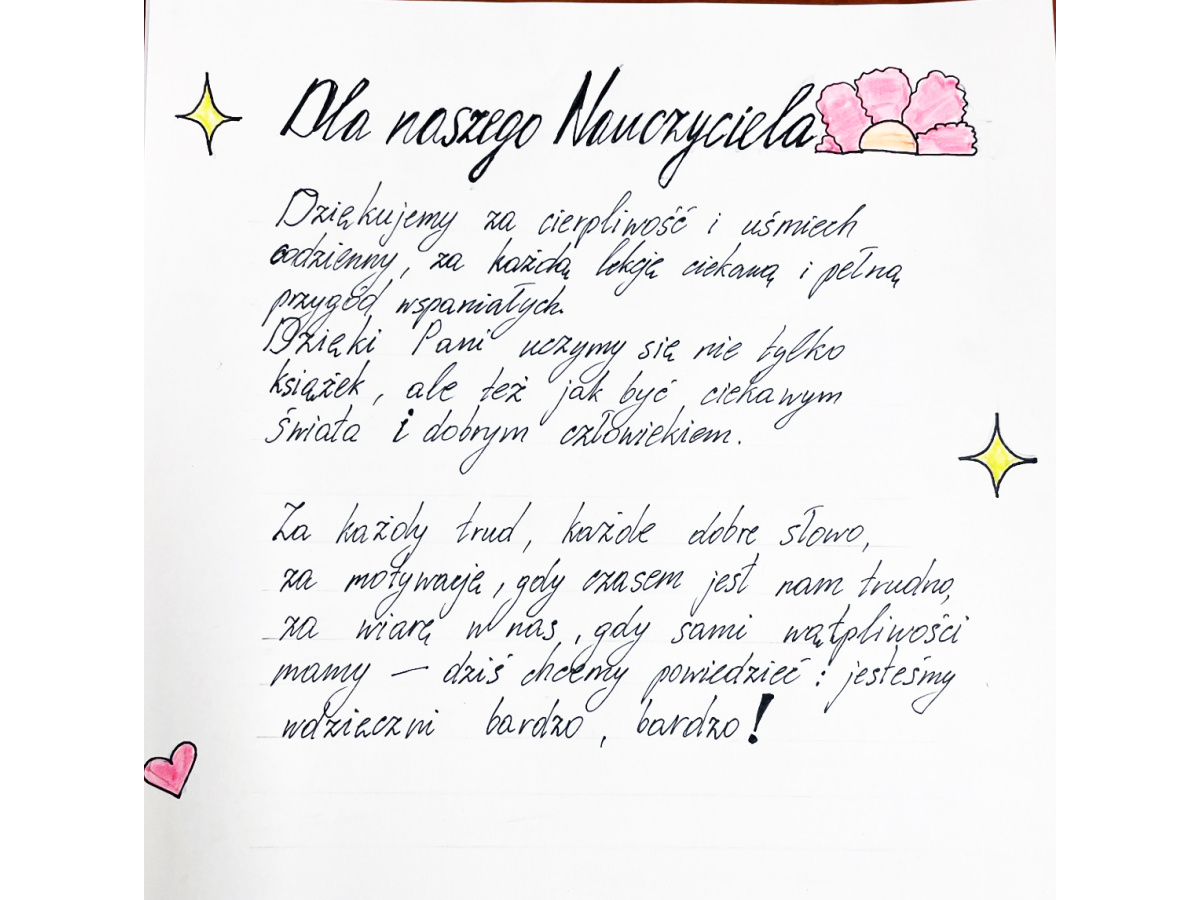 Dla naszego Nauczyciela
Dziękujemy za cierpliwość i uśmiech
codzienny, za każdą lekcję ciekawą i pełną
przygód wspaniałych.
Dzięki Pani uczymy się nie tylko
książek, ale też jak być ciekawym
świata i dobrym człowiekiem.
Za każdy trud, każde dobre słowo,
za motywację, gdy czasem jest nam trudno,
za wiarę w nas, gdy sami wątpliwości
mamy – dziś chcemy powiedzieć: jesteśmy
wdzięczni bardzo, bardzo!